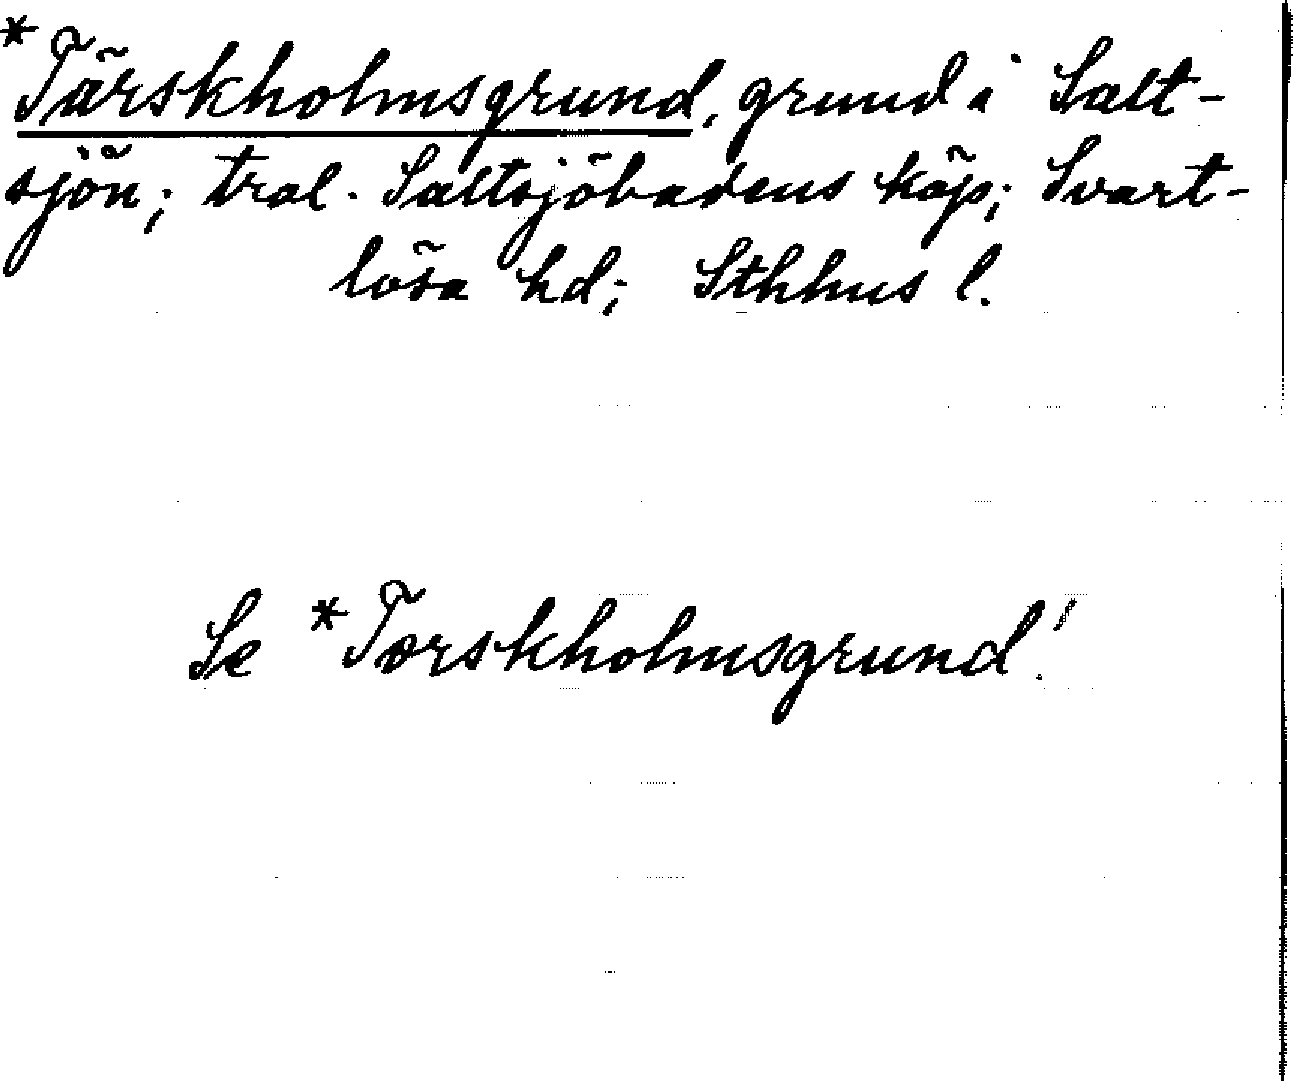 *Tärskholmsgrund, grund i Salt-
sjön; trol. Saltsjöbadens köp; Svart-
lösa hd; Sthhus l.
Se *Torskholmsgrund!